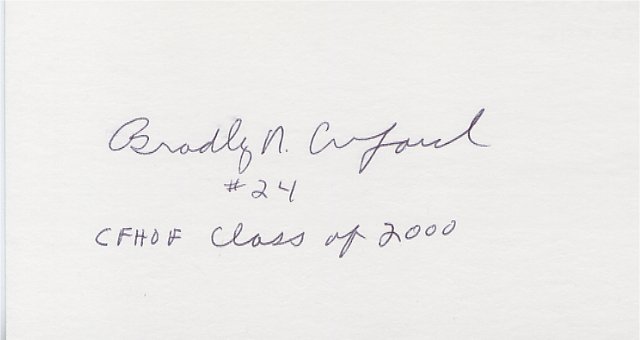 Bradly N. Crawford
#24
CFHOF Class of 2000